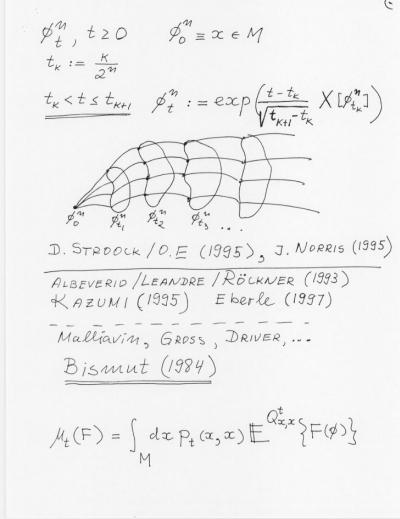 ϕₜⁿ, t ≥ 0   ϕ₀ⁿ ≡ x ∈ M
tₖ := k/2ⁿ
tₖ < t ≤ tₖ₊₁   ϕₜⁿ := exp( (t - tₖ)/√(tₖ₊₁ - tₖ) X[ϕⁿ_{tₖ}] )
ϕ₀ⁿ   ϕⁿ_{t₁}   ϕⁿ_{t₂}   ϕⁿ_{t₃} ...
D. STROOCK / O.E (1995), J. NORRIS (1995)
ALBEVERIO / LEANDRE / RÖCKNER (1993)
KAZUMI (1995)   Eberle (1997)
Malliavin, GROSS, DRIVER, ...
Bismut (1984)
μₜ(F) = ∫_M dx pₜ(x,x) 𝔼^{Q^t_{x,x}} {F(ϕ)}